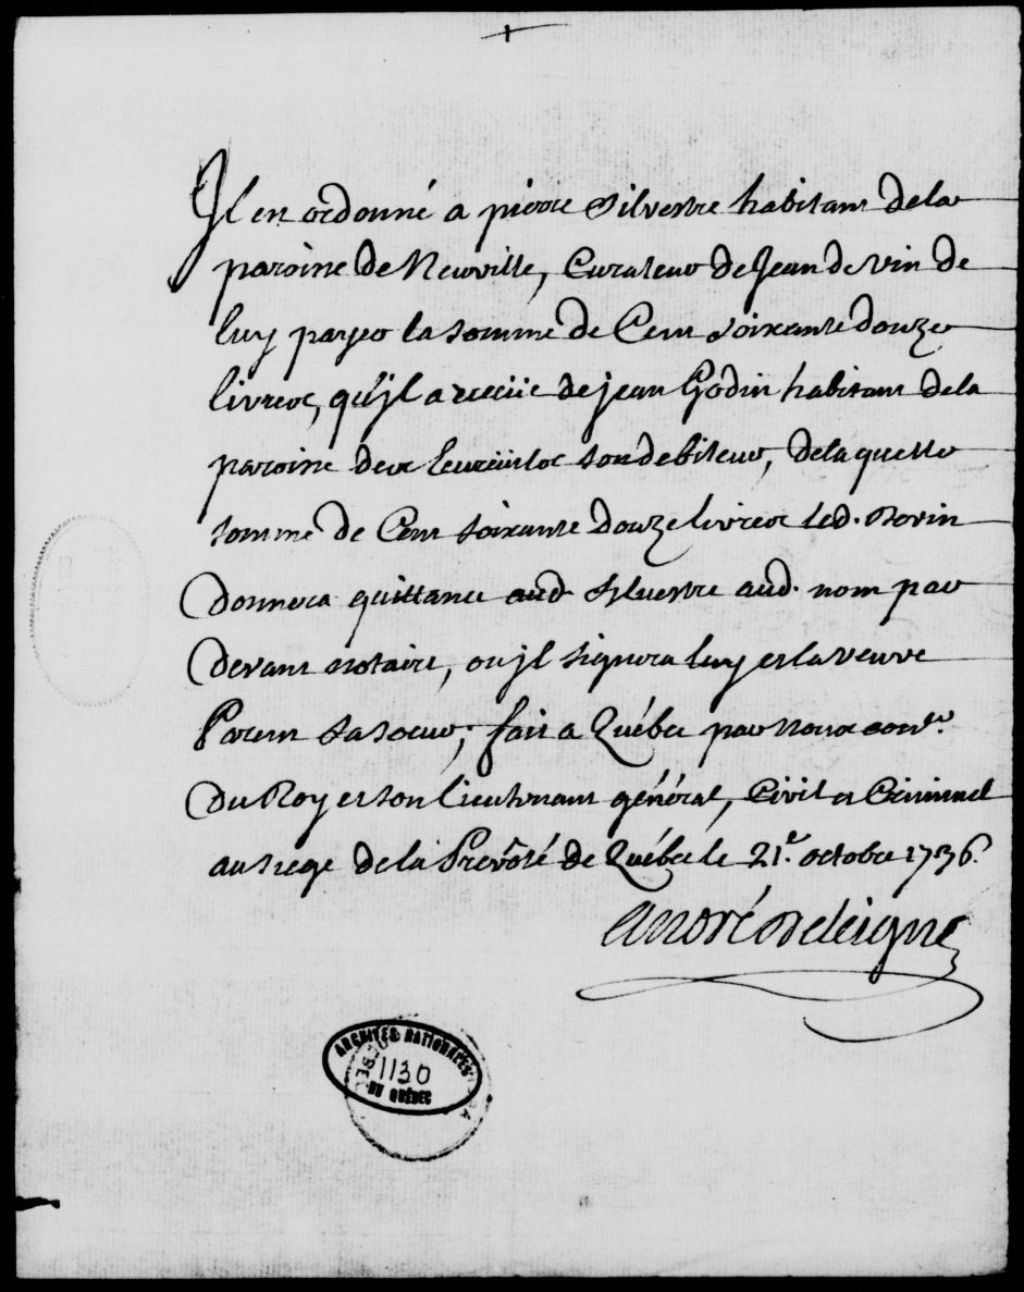 Il est ordonné a pierre Silvestre habitant dela
paroisse de Neuville, Curateur de Jean de Vin de
luy payer la somme de Cent Soixante douze
livres, qu'jl a receüe de jean Godin habitant dela
paroisse des Eureüils son debiteur, dela quelle
somme de Cent soixante douze livres led. Devin
donnera quittance aud. Sylvestre aud. nom par
devant notaire, ou jl signera luy et la veuve
Parent sa soeur; fait a Québec par Nous conser.
du Roy et son lieutenant général, Civil et Criminel
au siege de la Prevôté de Québec le 21e. octobre 1736.
André deleigne
ARCHIVES NATIONALES
1130
DU QUÉBEC